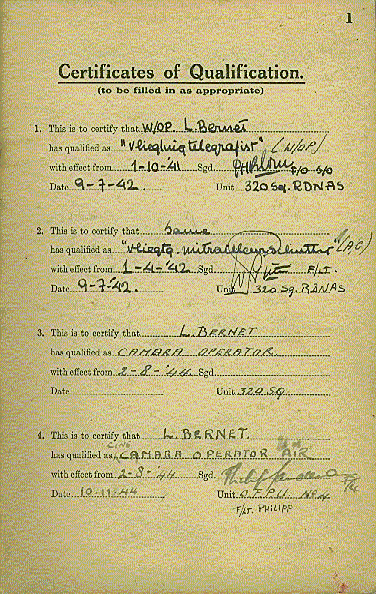 1
Certificates of Qualification.
(to be filled in as appropriate)
1. This is to certify that W/OP. L. Bernet
has qualified as "Vliegtuigtelegrafist" (W/OP)
with effect from 1-10-'41 Sgd. F/O S/O
Date 9-7-42. Unit 320 Sq. RDNAS
2. This is to certify that Same
has qualified as "Vliegtg. mitrailleurschutter" (AG)
with effect from 1-4-'42 Sgd. F/LT.
Date 9-7-'42. Unit 320 Sq. RDNAS
3. This is to certify that L. BERNET
has qualified as CAMARA OPERATOR
with effect from 2-8-'44 Sgd.
Date Unit 320 SQ
4. This is to certify that L. BERNET.
has qualified as CINE CAMARA OPERATOR AIR
with effect from 2-8-'44 Sgd. F/Lt
Date 10-11-44 Unit
F/LT. PHILIPP